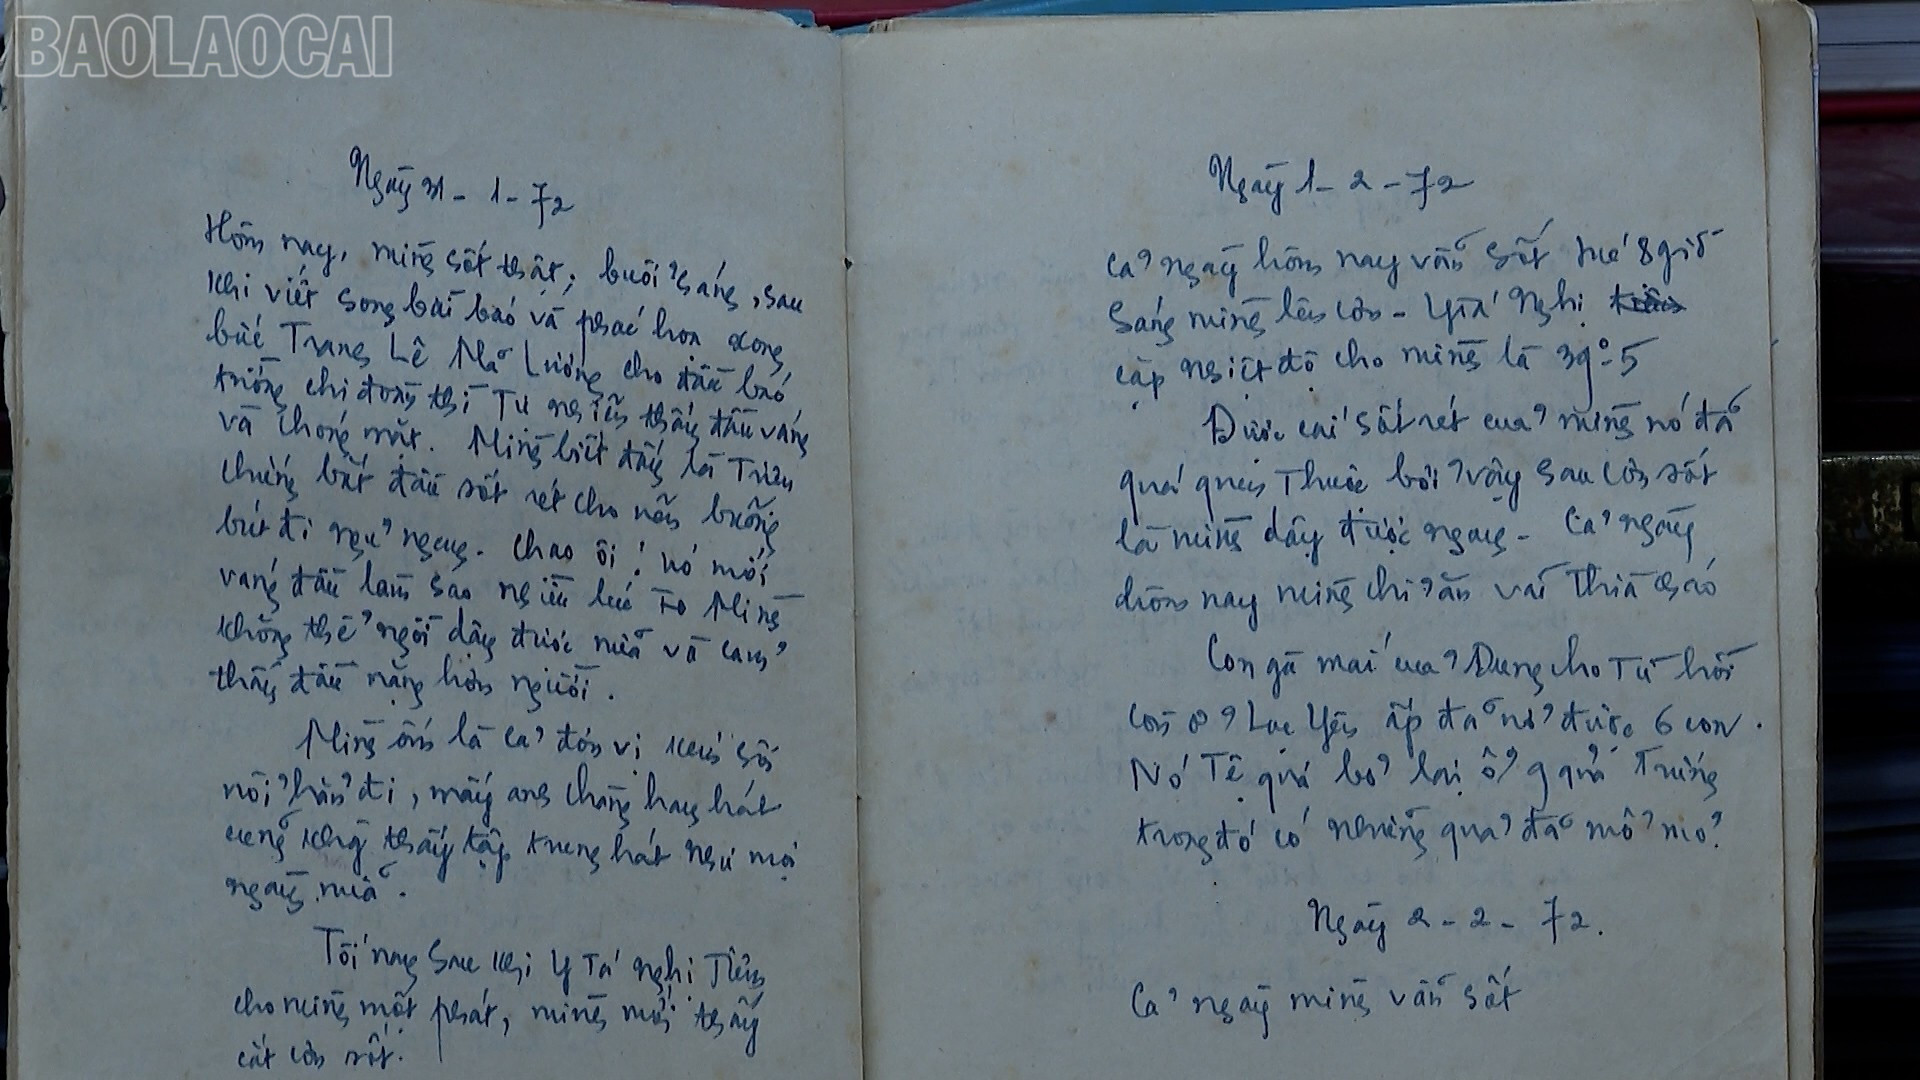 BAOLAOCAI
Ngày 31-1-72
Hôm nay, mình sốt thật; buổi sáng, sau
khi viết song bài báo và phác họa xong
bức Trang Lê Mã Lương cho đầu báo
tường chi đoàn thì Tự nhiên thấy đầu váng
và chóng mặt. Mình biết đấy là Triệu
chứng bắt đầu sốt rét cho nên buông
bút đi ngủ ngay. Chao ôi! nó mới
váng đầu làm sao nhiều lúc Mình
không thể ngồi dậy được nữa và cảm
thấy đầu nặng hơn người.
Mình ốm là cả đơn vị
nổi hẳn đi, mấy anh chàng hay hát
cũng khg thấy tập trung hát như mọi
ngày nữa.
Tối nay sau khi Y Tá Nghị Tiêm
cho mình một phát, mình mới thấy
cắt cơn sốt.
Ngày 1-2-72
Cả ngày hôm nay vẫn sốt lúc 8 giờ
sáng mình lên cơn - Y Tá Nghị
cặp nhiệt độ cho mình là 39°5
Được cái sốt rét của mình nó đã
quá quen Thuốc bởi vậy sau cơn sốt
là mình dậy được ngay - Cả ngày
hôm nay mình chỉ ăn vài Thìa cháo
Con gà mái của Dung cho Từ hồi
còn ở Lục Yên ấp đã nở được 6 con.
Nó Tệ quá bỏ lại ổ 9 quả Trứng
trong đó có những quả đã mổ mỏ.
Ngày 2-2-72.
Cả ngày mình vẫn sốt